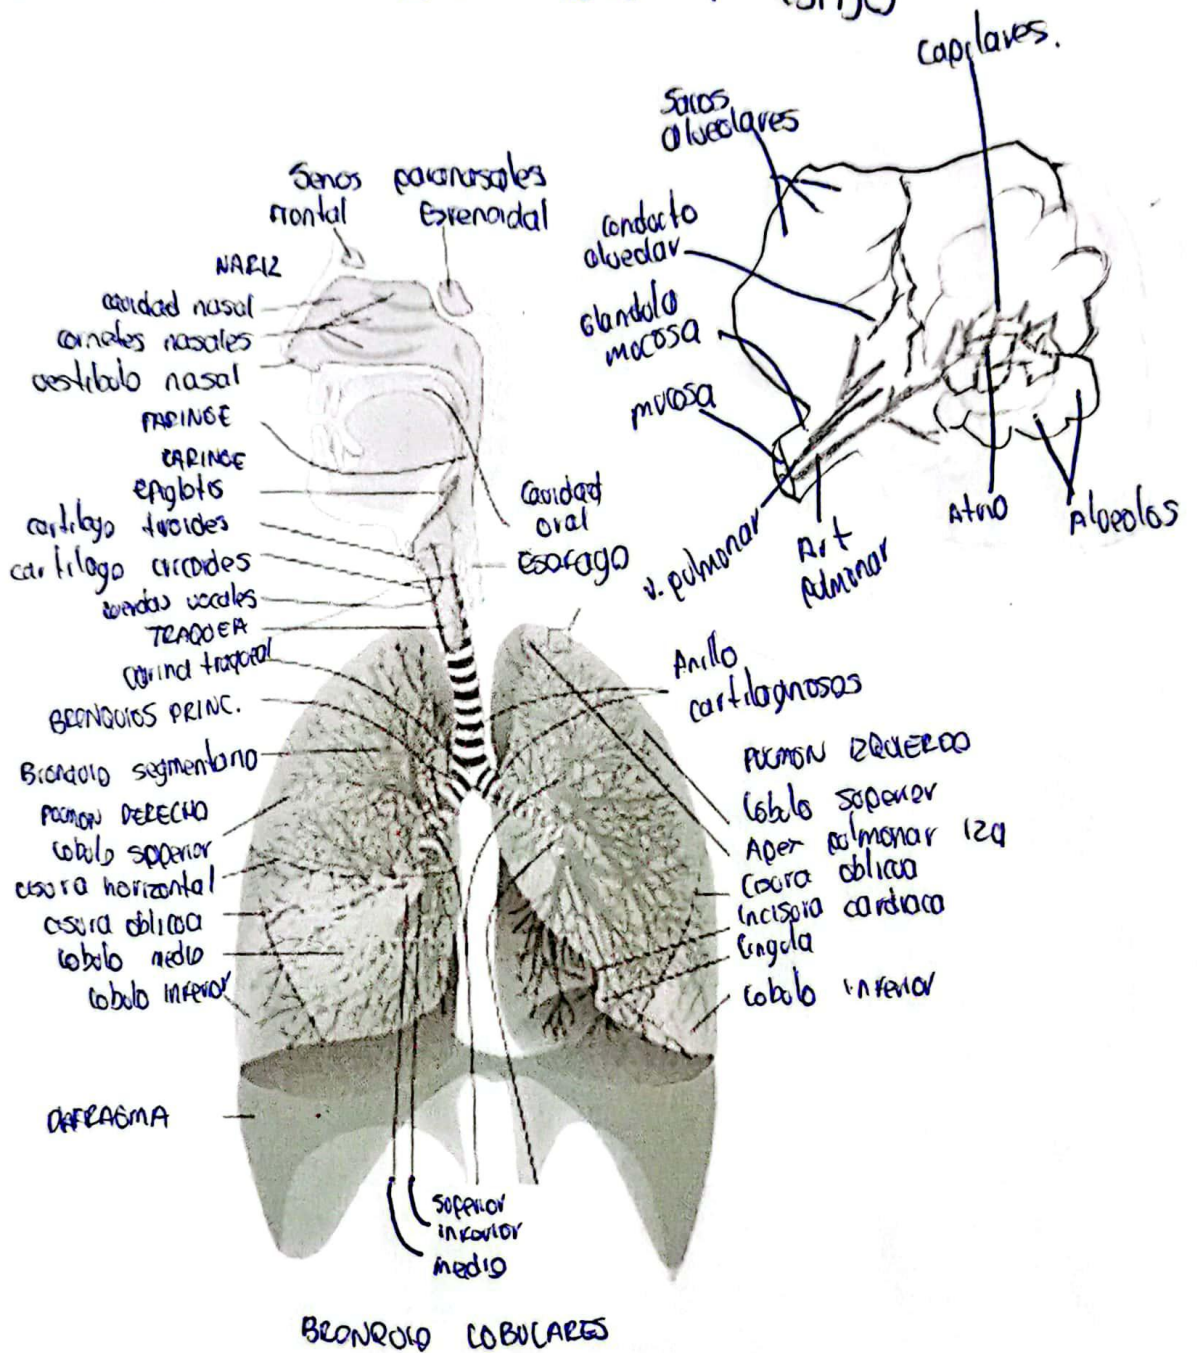 Capilares.
Sacos
alveolares
Conducto
alveolar
Glandula
mucosa
mucosa
v. pulmonar
Art
pulmonar
Atrio
Alveolos
Senos paranasales
Frontal Esfenoidal
NARIZ
cavidad nasal
cornetes nasales
vestibulo nasal
FARINGE
LARINGE
epiglotis
cartilago tiroides
cartilago cricoides
cuerdas vocales
TRAQUEA
Carina traqueal
BRONQUIOS PRINC.
Bronquio segmentario
PULMON DERECHO
Lobulo superior
cisura horizontal
cisura oblicua
Lobulo medio
Lobulo inferior
DIAFRAGMA
Cavidad
oral
Esofago
Anillo
cartilaginosos
PULMON IZQUIERDO
Lobulo superior
Apex pulmonar izq
Cisura oblicua
Incisura cardiaca
Lingula
Lobulo inferior
superior
inferior
medio
BRONQUIO LOBULARES